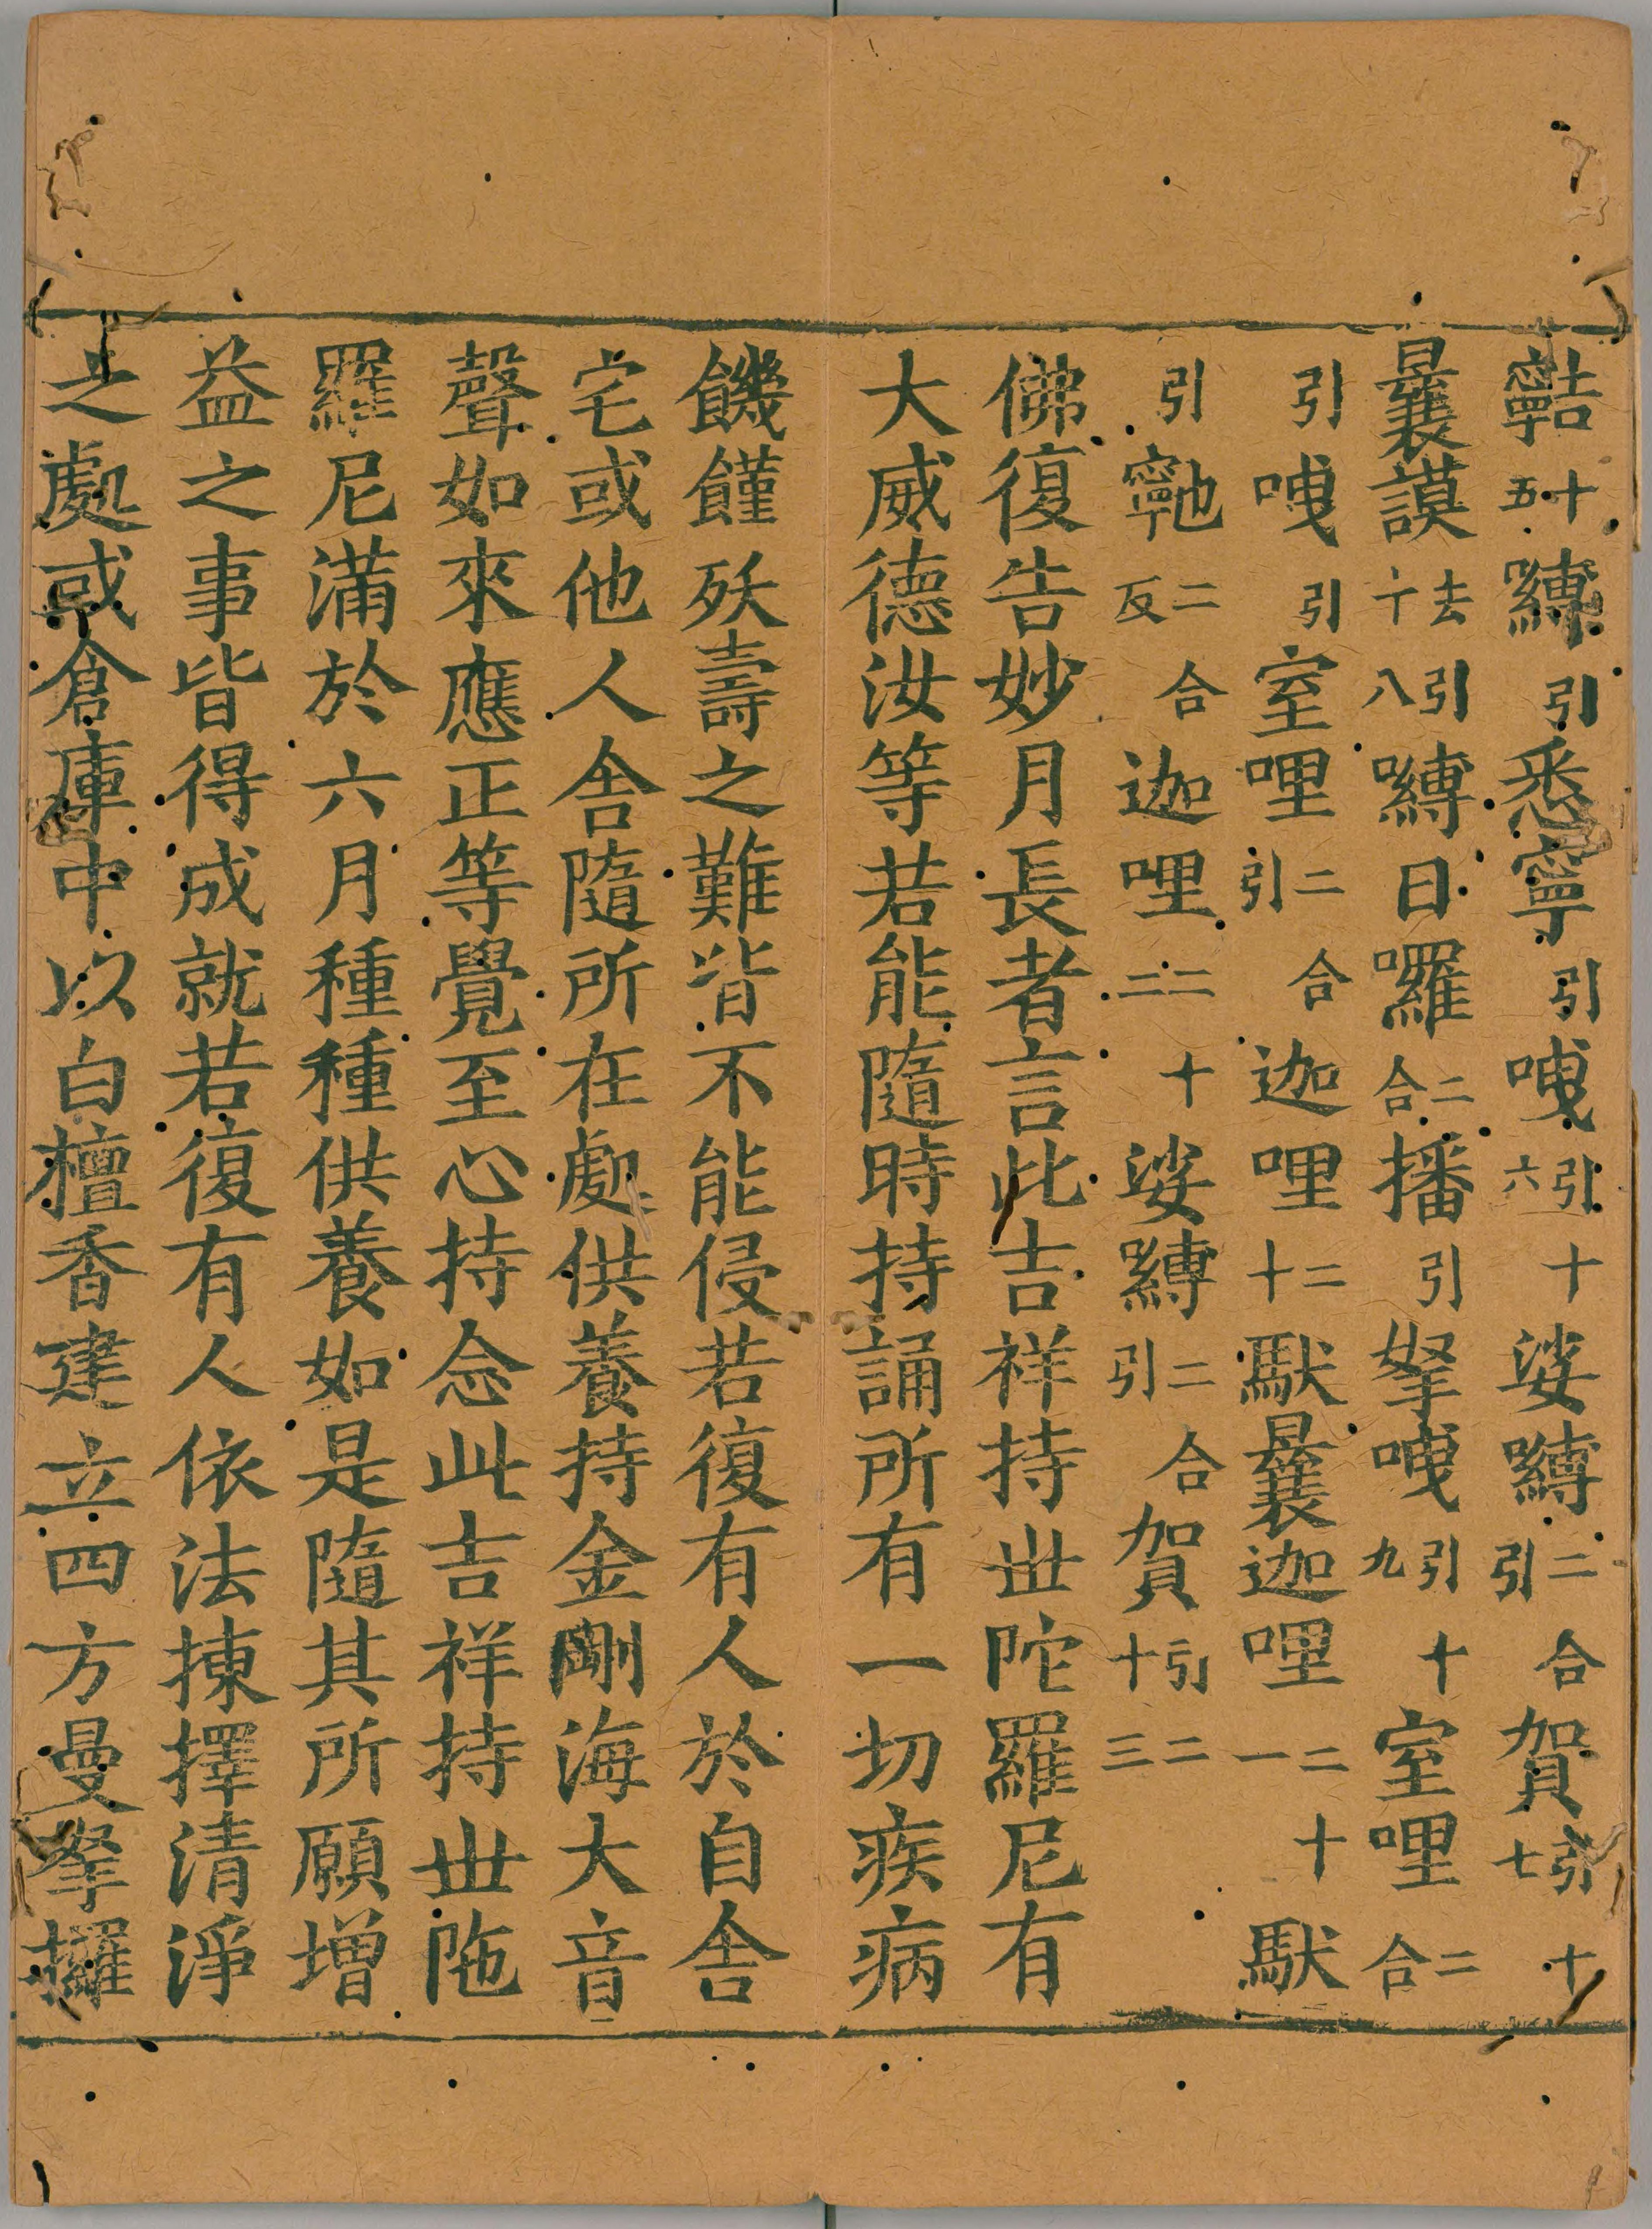 𪘨十五嚩引悉寧引曳引十六娑嚩二合引賀引十七
曩謨去引十八嚩日囉二合播引拏曳引十九室哩二合
引曳引室哩二合引迦哩二十馱曩迦哩二十一馱
引𩕳二合反迦哩二十二娑嚩二合引賀引二十三
佛復告妙月長者言此吉祥持世陀羅尼有
大威德汝等若能隨時持誦所有一切疾病
饑饉殀壽之難皆不能侵若復有人於自舍
宅或他人舍隨所在處供養持金剛海大音
聲如來應正等覺至心持念此吉祥持世陁
羅尼滿於六月種種供養如是隨其所願增
益之事皆得成就若復有人依法揀擇清淨
之處或倉庫中以白檀香建立四方曼拏攞